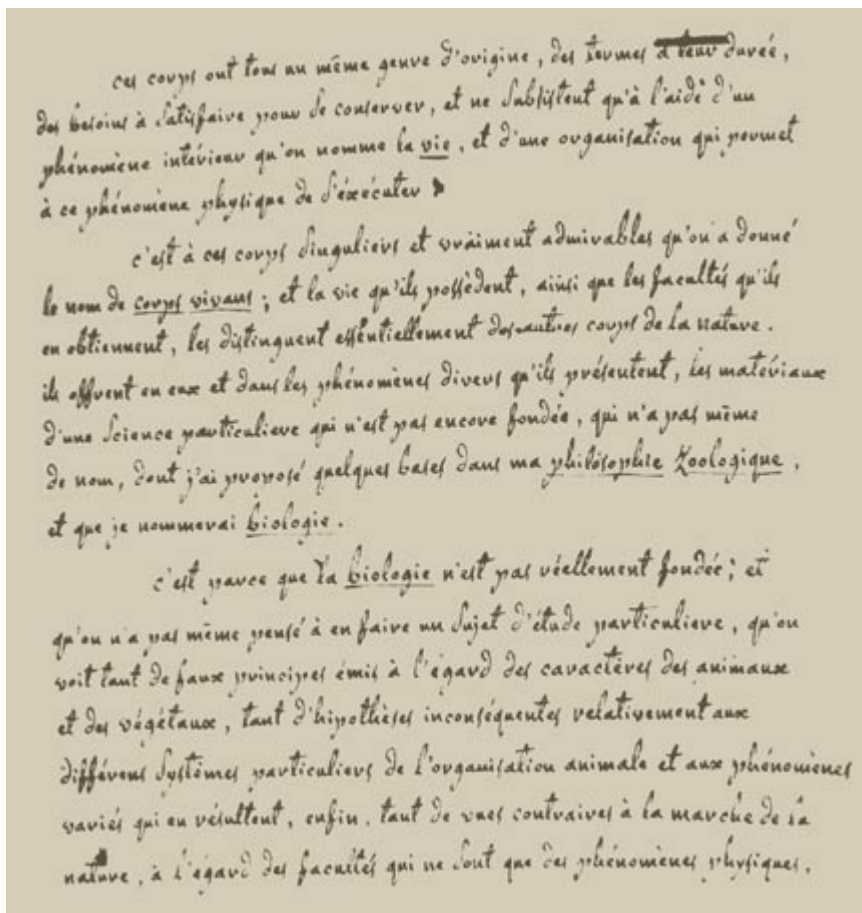 ces corps ont tous un même genre d'origine, des termes à leur durée,
des besoins à satisfaire pour se conserver, et ne subsistent qu'à l'aide d'un
phénomène intérieur qu'on nomme la vie, et d'une organisation qui permet
à ce phénomène physique de s'éxécuter.
c'est à ces corps singuliers et vraiment admirables qu'on a donné
le nom de corps vivans ; et la vie qu'ils possèdent, ainsi que les facultés qu'ils
en obtiennent, les distinguent essentiellement des autres corps de la nature.
ils offrent en eux et dans les phénomènes divers qu'ils présentent, les matériaux
d'une science particuliere qui n'est pas encore fondée, qui n'a pas même
de nom, dont j'ai proposé quelques bases dans ma philosophie Zoologique,
et que je nommerai biologie.
c'est parce que la biologie n'est pas réellement fondée ; et
qu'on n'a pas même pensé à en faire un sujet d'étude particuliere, qu'on
voit tant de faux principes émis à l'égard des caractères des animaux
et des végétaux, tant d'hipothèses inconséquentes relativement aux
différens systèmes particuliers de l'organisation animale et aux phénomènes
variés qui en résultent, enfin, tant de vues contraires à la marche de la
nature, à l'égard des facultés qui ne sont que des phénomènes physiques.